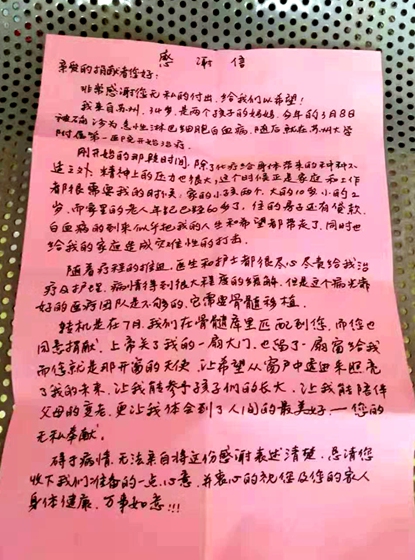 感谢信
亲爱的捐献者您好:
非常感谢您无私的付出,给我们以希望!
我来自苏州,34岁,是两个孩子的妈妈,今年的3月8日
被确诊为急性淋巴细胞白血病,随后就在苏州大学
附属第一医院开始治疗。
刚开始的那段时间,除了化疗给身体带来的种种不
适之外,精神上的压力也很大,这个时候正是家庭和工作
都很需要我的时候,家的小孩两个,大的10岁小的2
岁,而家里的老人年纪已经60多了,住的房子还有贷款,
白血病的到来似乎把我的人生和希望都带走了,同时也
给我的家庭造成灾难性的打击。
随着疗程的推进,医生和护士都很尽心尽责给我治
疗及护理,病情得到很大程度的缓解,但是这个病光靠
好的医疗团队是不够的,它需要骨髓移植。
转机是在7月,我们在骨髓库里匹配到您,而您也
同意捐献,上帝关了我的一扇大门,也留了一扇窗给我
而您就是那开窗的天使,让希望从窗户中透进来照亮
了我的未来,让我能参予孩子们的长大,让我能陪伴
父母的变老,更让我体会到了人间的最美好,—您的
无私奉献。
碍于病情,无法亲自将这份感谢表述清楚,恳请您
收下我们准备的一点心意,并衷心的祝您及您的家人
身体健康,万事如意!!!